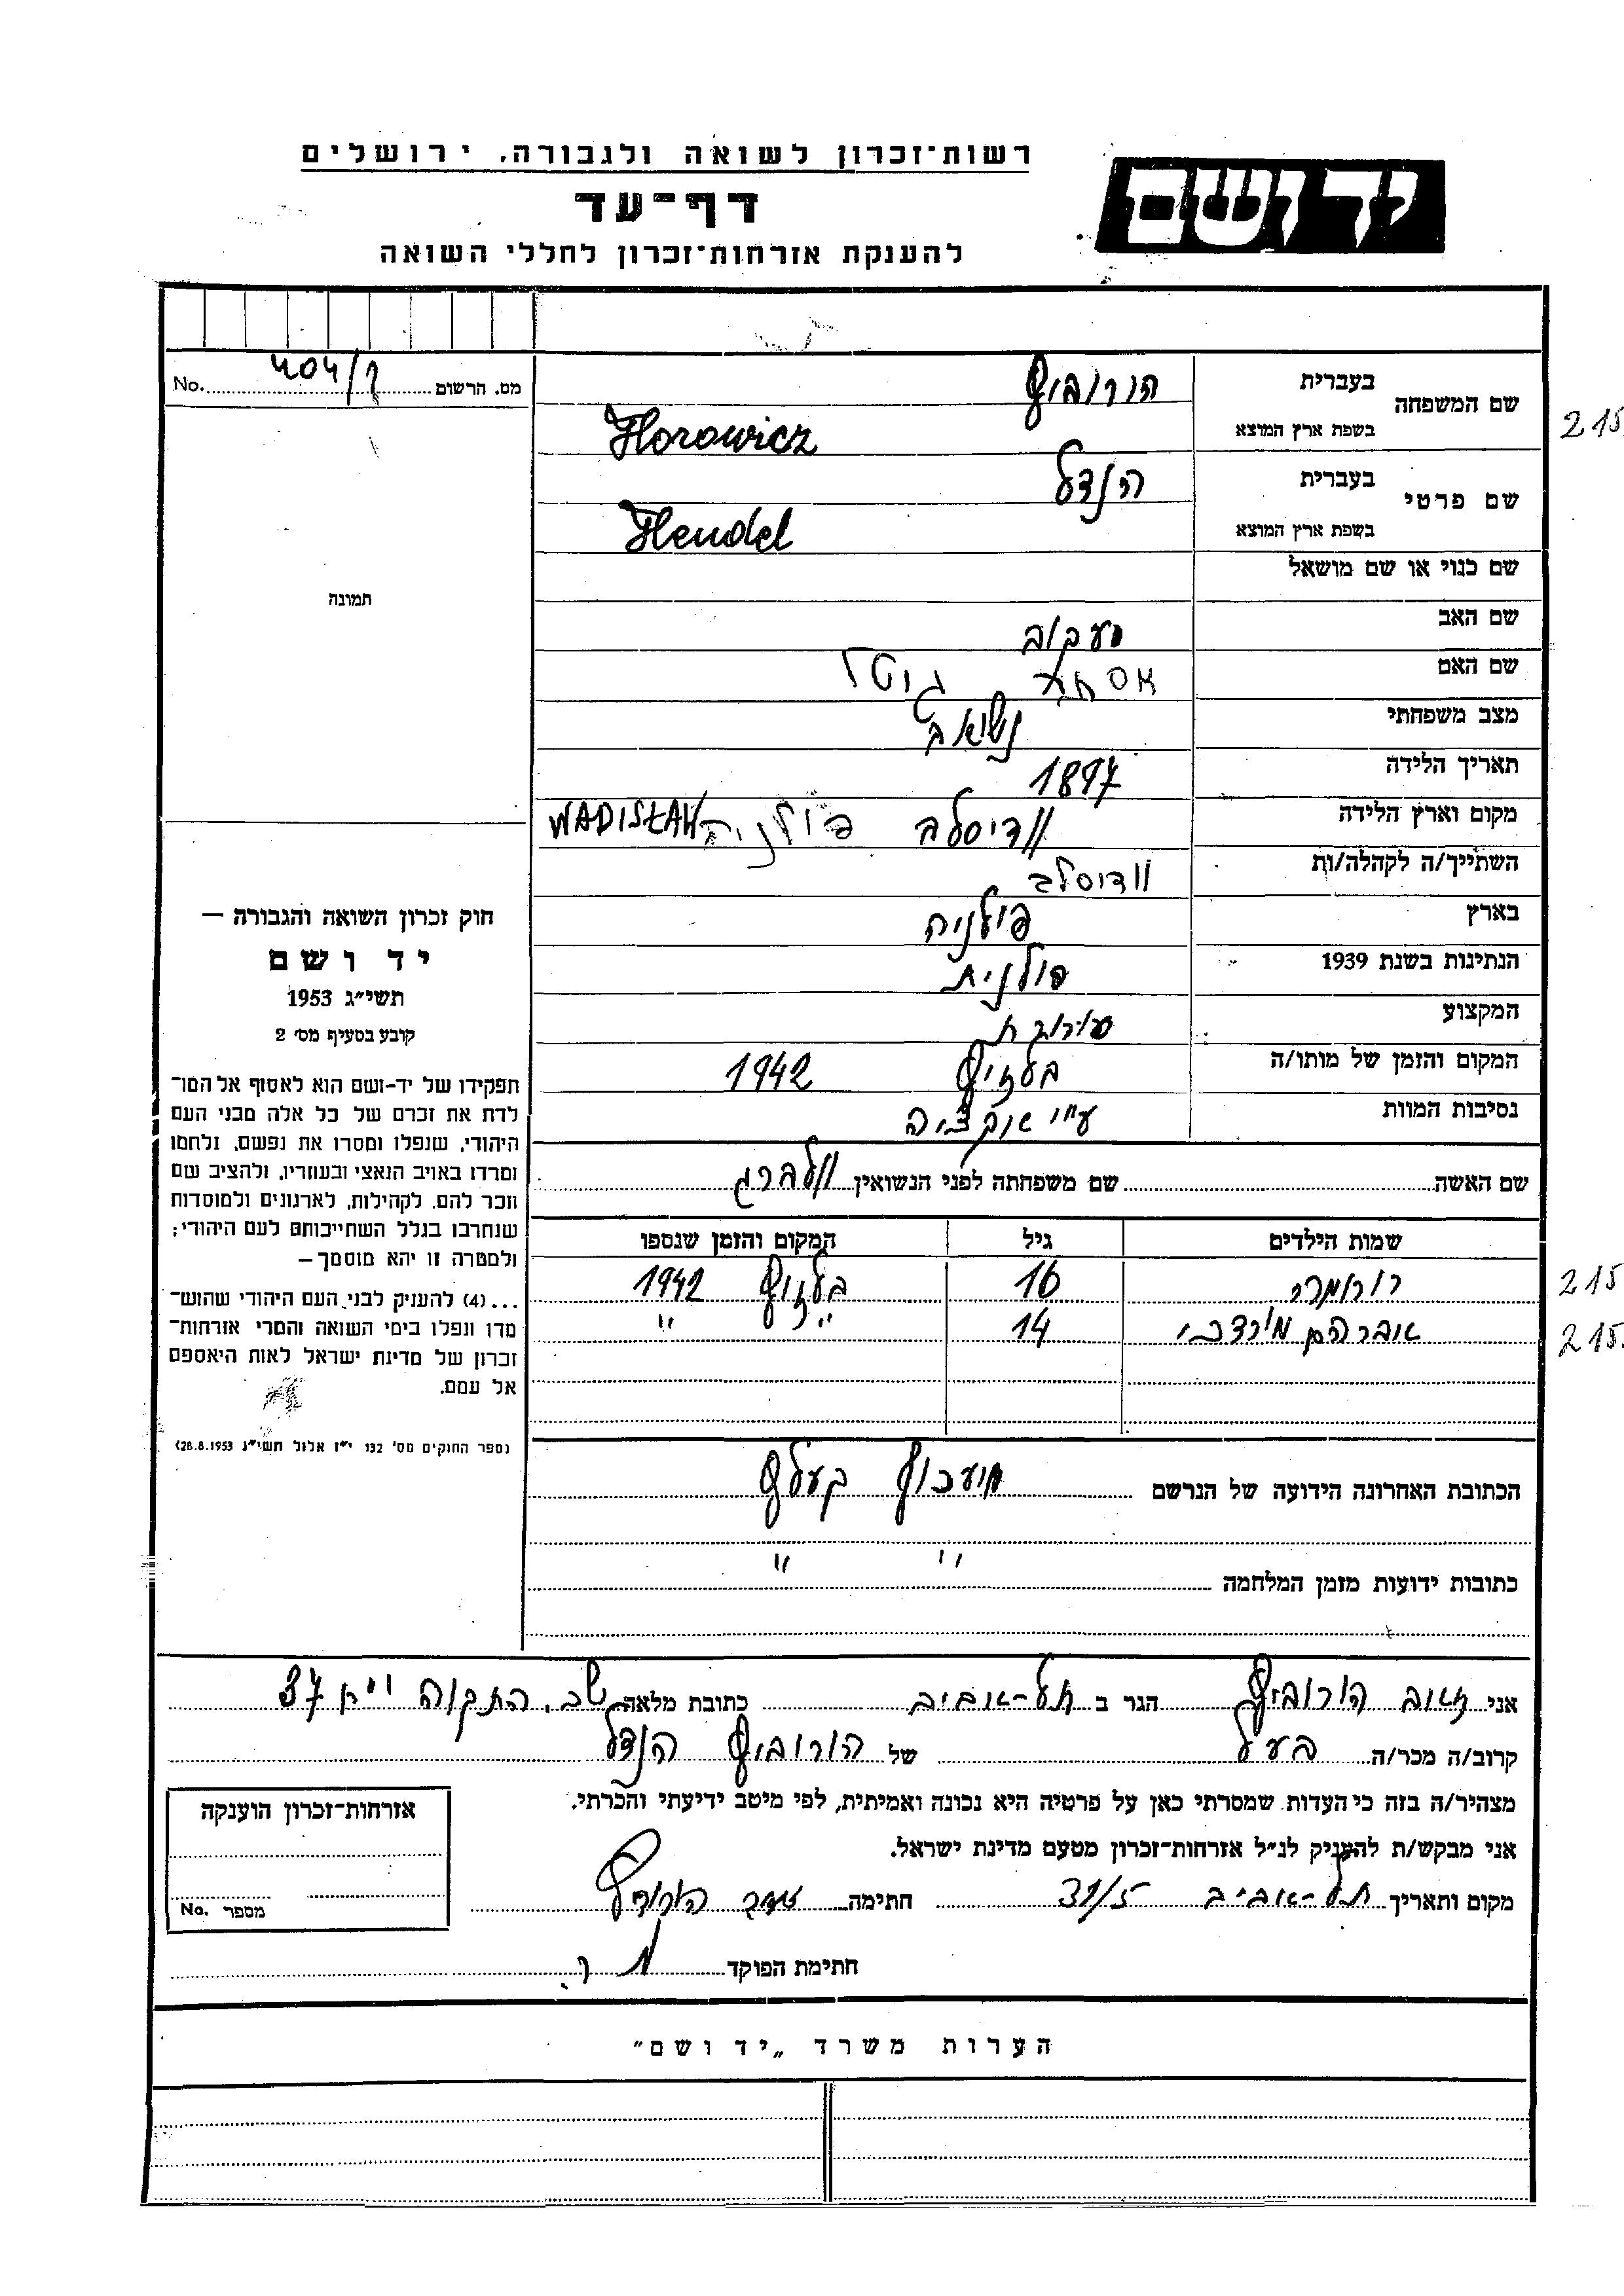 רשות־זכרון לשואה ולגבורה, ירושלים
יד ושם
דף־עד
להענקת אזרחות־זכרון לחללי השואה
מס. הרשום No. 404/
שם המשפחה בעברית הורוביץ
בשפת ארץ המוצא Horowicz
215
שם פרטי בעברית הנדל
בשפת ארץ המוצא Hendel
שם כנוי או שם מושאל
תמונה
שם האב יעקוב
שם האם גוטל
מצב משפחתי נשואה
תאריך הלידה 1897
מקום וארץ הלידה וודיסלב פולניה WADISŁAW
השתייך/ה לקהלה/ות וודיסלב
בארץ פולניה
הנתינות בשנת 1939 פולנית
המקצוע
המקום והזמן של מותו/ה בעלזיץ 1942
נסיבות המוות ע"י אוקציה
שם האשה שם משפחתה לפני הנשואין וולברג
חוק זכרון השואה והגבורה —
יד ושם
תשי״ג 1953
קובע בסעיף מס׳ 2
תפקידו של יד-ושם הוא לאסוף אל המו־
לדת את זכרם של כל אלה מבני העם
היהודי, שנפלו ומסרו את נפשם, נלחמו
ומרדו באויב הנאצי ובעוזריו, ולהציב שם
וזכר להם, לקהילות, לארגונים ולמוסדות
שנחרבו בגלל השתייכותם לעם היהודי;
ולמטרה זו יהא מוסמך —
...(4) להעניק לבני העם היהודי שהוש־
מדו ונפלו בימי השואה והמרי אזרחות־
זכרון של מדינת ישראל לאות היאספם
אל עמם.
(ספר החוקים מס׳ 132 י״ז אלול תשי״ג 28.8.1953)
שמות הילדים גיל המקום והזמן שנספו
16 בעלזיץ 1942
215
אברהם מורדכי 14 " "
215
הכתובת האחרונה הידועה של הנרשם
כתובות ידועות מזמן המלחמה " "
אני זאב הורוביץ הגר ב תל-אביב כתובת מלאה שכ. התקוה 37
קרוב/ה מכר/ה בעל של הורוביץ הנדל
מצהיר/ה בזה כי העדות שמסרתי כאן על פרטיה היא נכונה ואמיתית, לפי מיטב ידיעתי והכרתי.
אני מבקש/ת להעניק לנ״ל אזרחות־זכרון מטעם מדינת ישראל.
מקום ותאריך תל-אביב 31/5 חתימה זאב הורוביץ
חתימת הפוקד
אזרחות־זכרון הוענקה
מספר No.
הערות משרד „יד ושם״